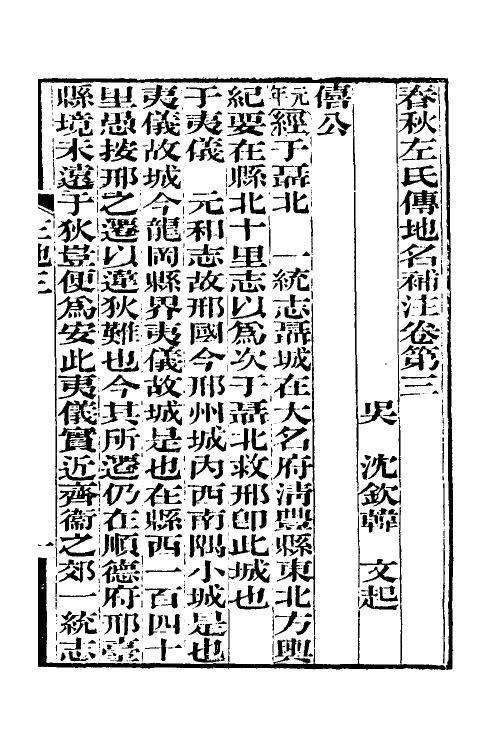 春秋左氏傳地名補注卷第三
吳 沈欽韓 文起
僖公
元年經于聶北 一統志聶城在大名府清豐縣東北方輿
紀要在縣北十里志以爲次于聶北救邢卽此城也
于夷儀 元和志故邢國今邢州城內西南隅小城是也
夷儀故城今龍岡縣界夷儀故城是也在縣西一百四十
里愚按邢之遷以違狄難也今其所遷仍在順德府邢臺
縣境未遠于狄豈便爲安此夷儀實近齊衞之郊一統志
左地三
一